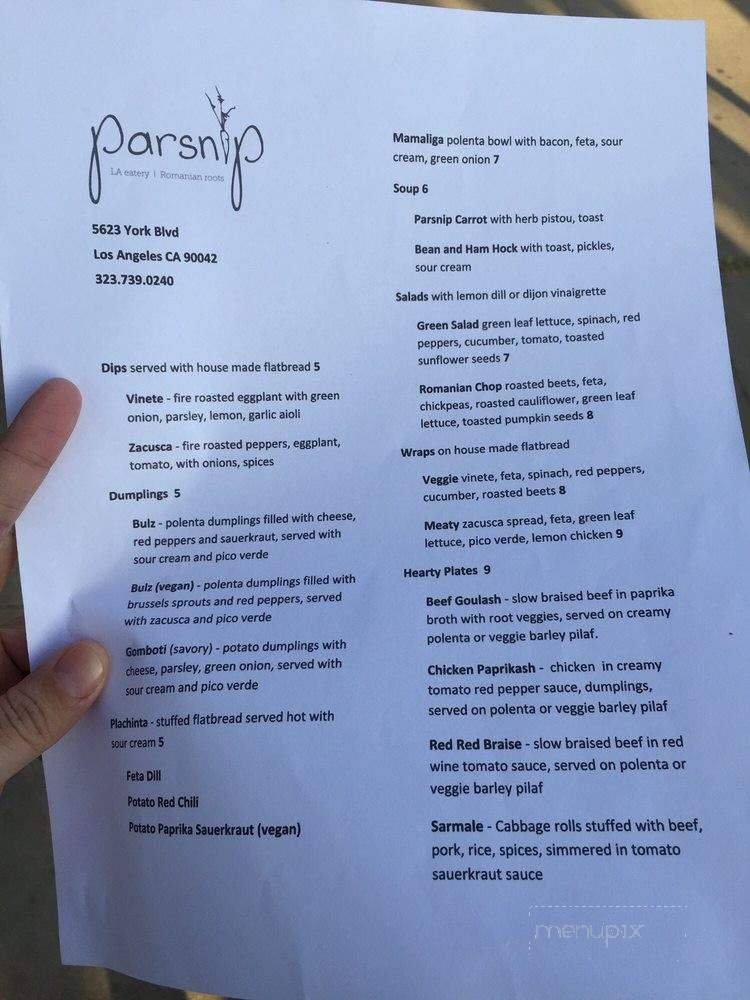 parsnip
LA eatery | Romanian roots
5623 York Blvd
Los Angeles CA 90042
323.739.0240
Dips served with house made flatbread 5
Vinete - fire roasted eggplant with green
onion, parsley, lemon, garlic aioli
Zacusca - fire roasted peppers, eggplant,
tomato, with onions, spices
Dumplings 5
Bulz - polenta dumplings filled with cheese,
red peppers and sauerkraut, served with
sour cream and pico verde
Bulz (vegan) - polenta dumplings filled with
brussels sprouts and red peppers, served
with zacusca and pico verde
Gomboti (savory) - potato dumplings with
cheese, parsley, green onion, served with
sour cream and pico verde
Plachinta - stuffed flatbread served hot with
sour cream 5
Feta Dill
Potato Red Chili
Potato Paprika Sauerkraut (vegan)
Mamaliga polenta bowl with bacon, feta, sour
cream, green onion 7
Soup 6
Parsnip Carrot with herb pistou, toast
Bean and Ham Hock with toast, pickles,
sour cream
Salads with lemon dill or dijon vinaigrette
Green Salad green leaf lettuce, spinach, red
peppers, cucumber, tomato, toasted
sunflower seeds 7
Romanian Chop roasted beets, feta,
chickpeas, roasted cauliflower, green leaf
lettuce, toasted pumpkin seeds 8
Wraps on house made flatbread
Veggie vinete, feta, spinach, red peppers,
cucumber, roasted beets 8
Meaty zacusca spread, feta, green leaf
lettuce, pico verde, lemon chicken 9
Hearty Plates 9
Beef Goulash - slow braised beef in paprika
broth with root veggies, served on creamy
polenta or veggie barley pilaf.
Chicken Paprikash - chicken in creamy
tomato red pepper sauce, dumplings,
served on polenta or veggie barley pilaf
Red Red Braise - slow braised beef in red
wine tomato sauce, served on polenta or
veggie barley pilaf
Sarmale - Cabbage rolls stuffed with beef,
pork, rice, spices, simmered in tomato
sauerkraut sauce
menupix